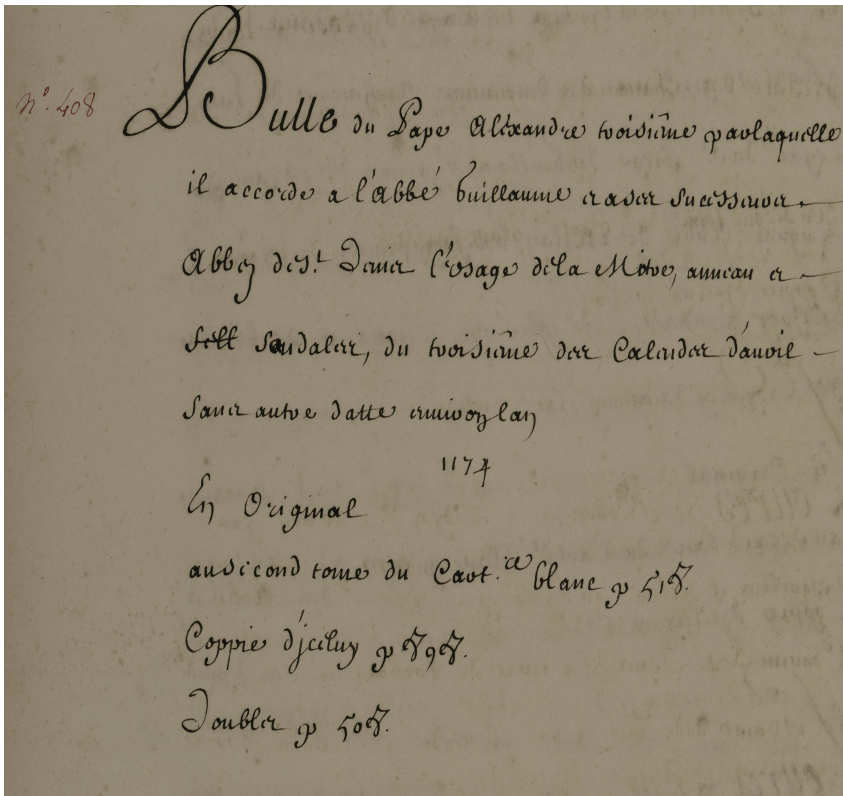 n.º 408
Bulle du Pape Alexandre troisiéme par laquelle
il accorde a l'Abbé Guillaume et a ses sucesseurs
Abbez de S.t Denis l'Usage de la Mitre, anneau et
sandales, du troisiéme des Calendes d'avril
sans autre datte environ l'an
1174
En Original
au second tome du Cart.re blanc p 518.
Coppie d'jceluy p 898.
Doubles p 508.